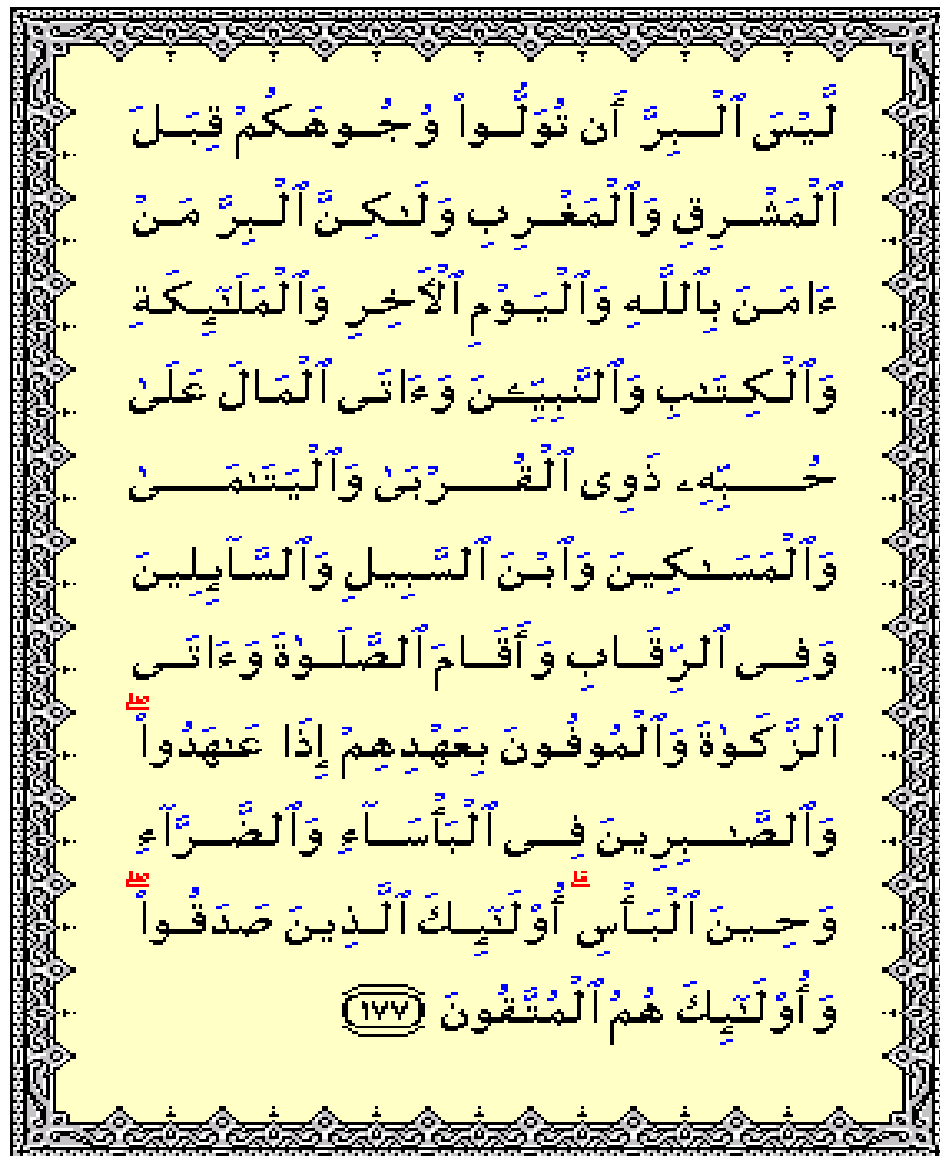 لَّيْسَ ٱلْبِرَّ أَن تُوَلُّوا۟ وُجُوهَكُمْ قِبَلَ
ٱلْمَشْرِقِ وَٱلْمَغْرِبِ وَلَـٰكِنَّ ٱلْبِرَّ مَنْ
ءَامَنَ بِٱللَّهِ وَٱلْيَوْمِ ٱلْـَٔاخِرِ وَٱلْمَلَـٰٓئِكَةِ
وَٱلْكِتَـٰبِ وَٱلنَّبِيِّـۧنَ وَءَاتَى ٱلْمَالَ عَلَىٰ
حُبِّهِۦ ذَوِى ٱلْقُرْبَىٰ وَٱلْيَتَـٰمَىٰ
وَٱلْمَسَـٰكِينَ وَٱبْنَ ٱلسَّبِيلِ وَٱلسَّآئِلِينَ
وَفِى ٱلرِّقَابِ وَأَقَامَ ٱلصَّلَوٰةَ وَءَاتَى
ٱلزَّكَوٰةَ وَٱلْمُوفُونَ بِعَهْدِهِمْ إِذَا عَـٰهَدُوا۟ ۖ
وَٱلصَّـٰبِرِينَ فِى ٱلْبَأْسَآءِ وَٱلضَّرَّآءِ
وَحِينَ ٱلْبَأْسِ ۗ أُو۟لَـٰٓئِكَ ٱلَّذِينَ صَدَقُوا۟ ۖ
وَأُو۟لَـٰٓئِكَ هُمُ ٱلْمُتَّقُونَ ١٧٧